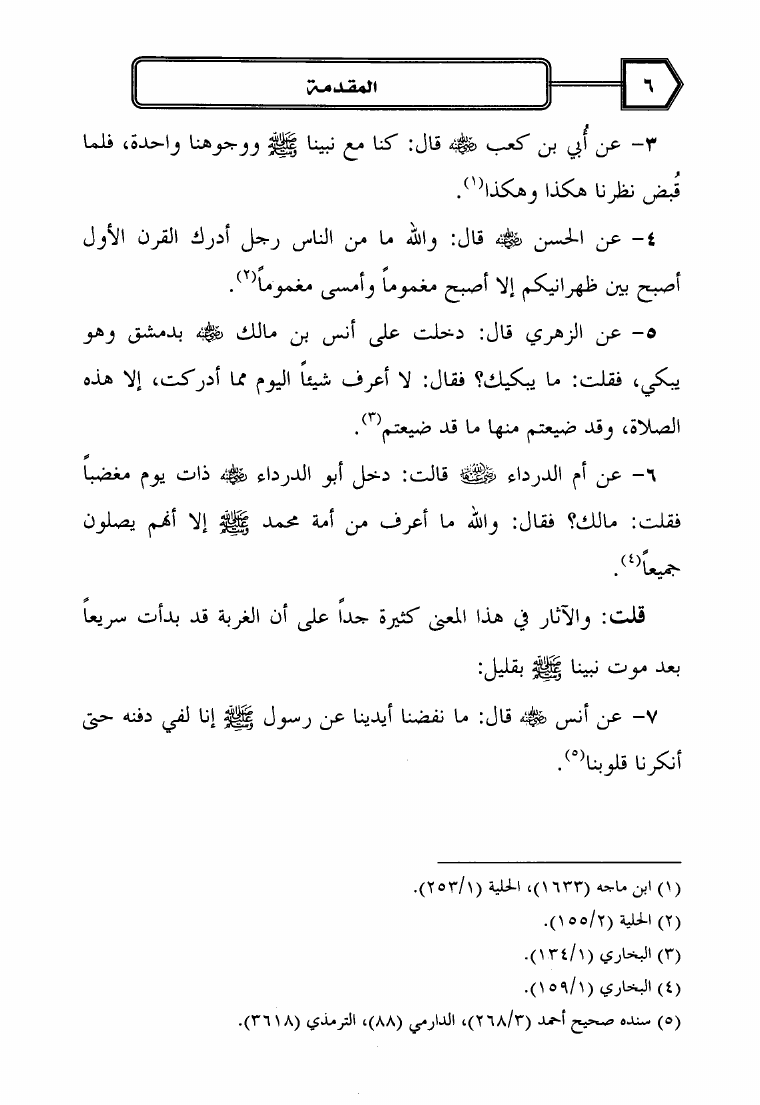 ٦
المقدمة
٣- عن أُبي بن كعب ﷺ قال: كنا مع نبينا ﷺ ووجوهنا واحدة، فلما
قُبض نظرنا هكذا وهكذا(١).
٤- عن الحسن ﷺ قال: والله ما من الناس رجل أدرك القرن الأول
أصبح بين ظهرانيكم إلا أصبح مغموماً وأمسى مغموماً(٢).
٥- عن الزهري قال: دخلت على أنس بن مالك ﷺ بدمشق وهو
يبكي، فقلت: ما يبكيك؟ فقال: لا أعرف شيئاً اليوم مما أدركت، إلا هذه
الصلاة، وقد ضيعتم منها ما قد ضيعتم(٣).
٦- عن أم الدرداء قالت: دخل أبو الدرداء ﷺ ذات يوم مغضباً
فقلت: مالك؟ فقال: والله ما أعرف من أمة محمد ﷺ إلا أنهم يصلون
جميعاً(٤).
قلت: والآثار في هذا المعنى كثيرة جداً على أن الغربة قد بدأت سريعاً
بعد موت نبينا ﷺ بقليل:
٧- عن أنس ﷺ قال: ما نفضنا أيدينا عن رسول ﷺ إنا لفي دفنه حتى
أنكرنا قلوبنا(٥).
(١) ابن ماجه (١٦٣٣)، الحلية (٢٥٣/١).
(٢) الحلية (١٥٥/٢).
(٣) البخاري (١٣٤/١).
(٤) البخاري (١٥٩/١).
(٥) سنده صحيح أحمد (٢٦٨/٣)، الدارمي (٨٨)، الترمذي (٣٦١٨).